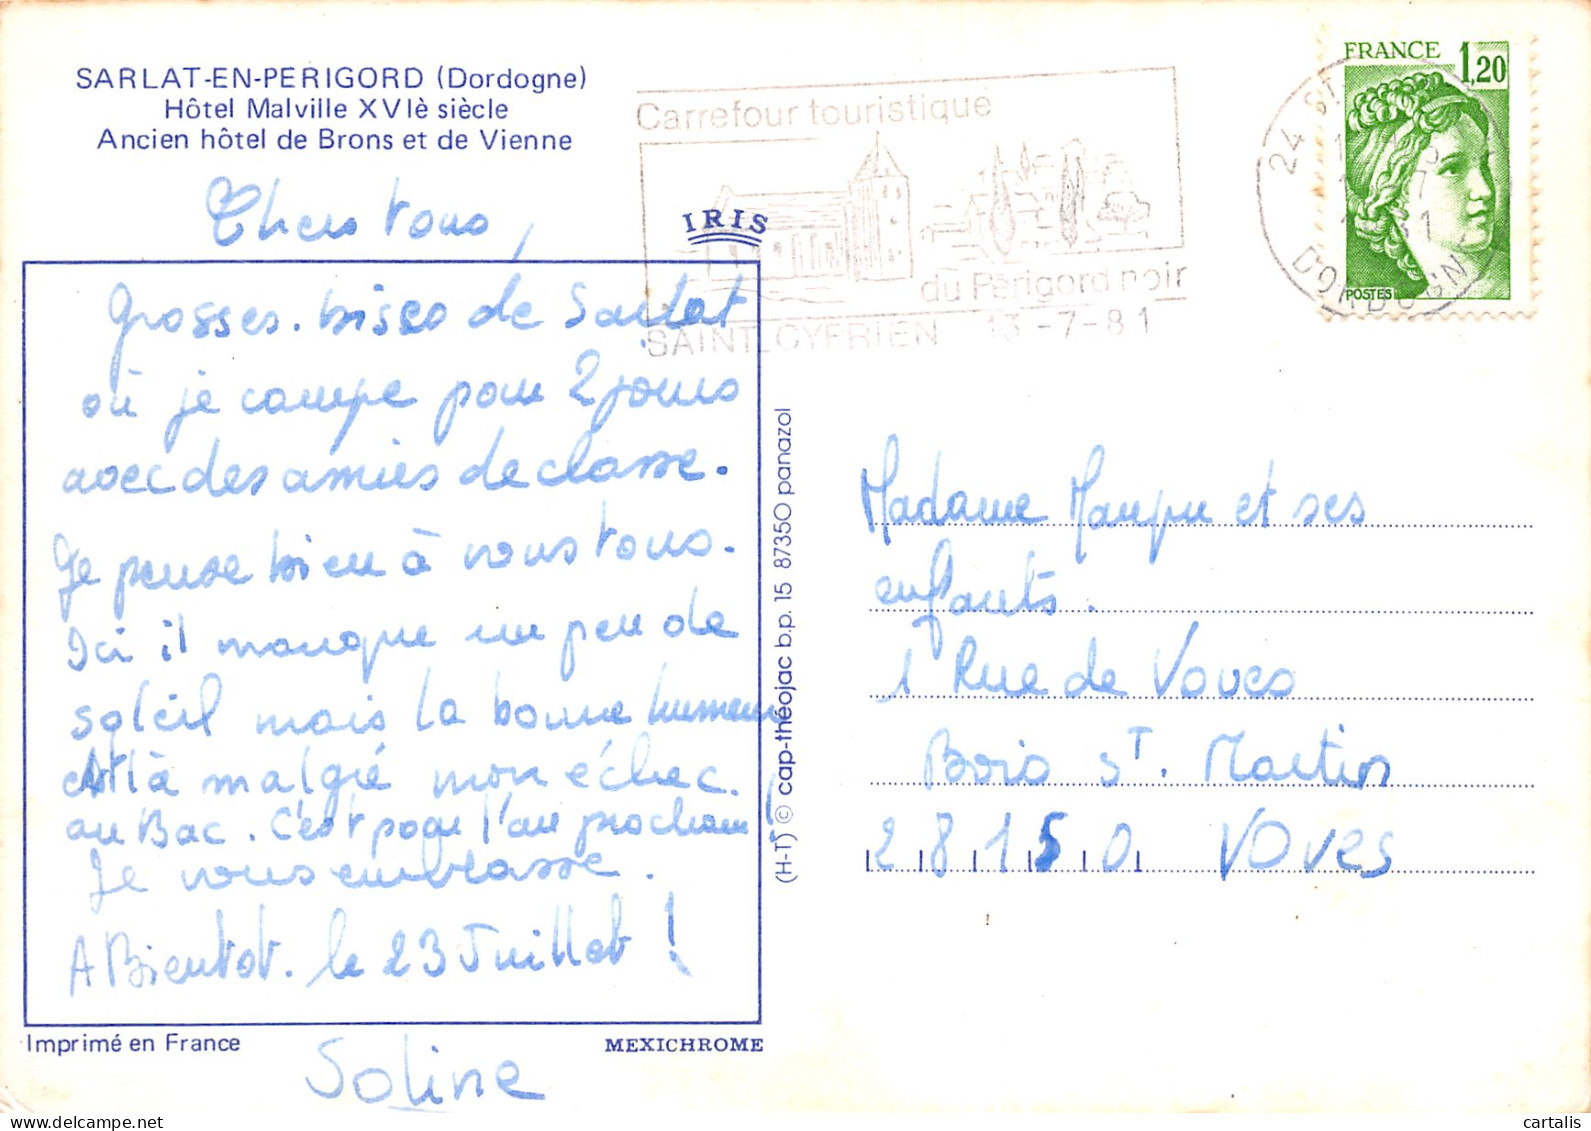 SARLAT-EN-PERIGORD (Dordogne)
Hôtel Malville XVIè siècle
Ancien hôtel de Brons et de Vienne
Chers tous,
Grosses bises de Sarlat
où je campe pour 2 jours
avec des amies de classe.
Je pense bien à vous tous.
Ici il manque un peu de
soleil mais la bonne humeur
est là malgré mon échec
au Bac. C'est pour l'an prochain !
Je vous embrasse.
A Bientot. le 23 Juillet !
Soline
Imprimé en France
MEXICHROME
IRIS
(H-T) © cap-théojac b.p. 15 87350 panazol
Carrefour touristique
du Périgord noir
SAINT-CYPRIEN 13-7-81
24 ST
DORDOGNE
FRANCE
1,20
POSTES
Madame Maupu et ses
enfants.
1 Rue de Voves
Bois St. Martin
28150 Voves
cartalis